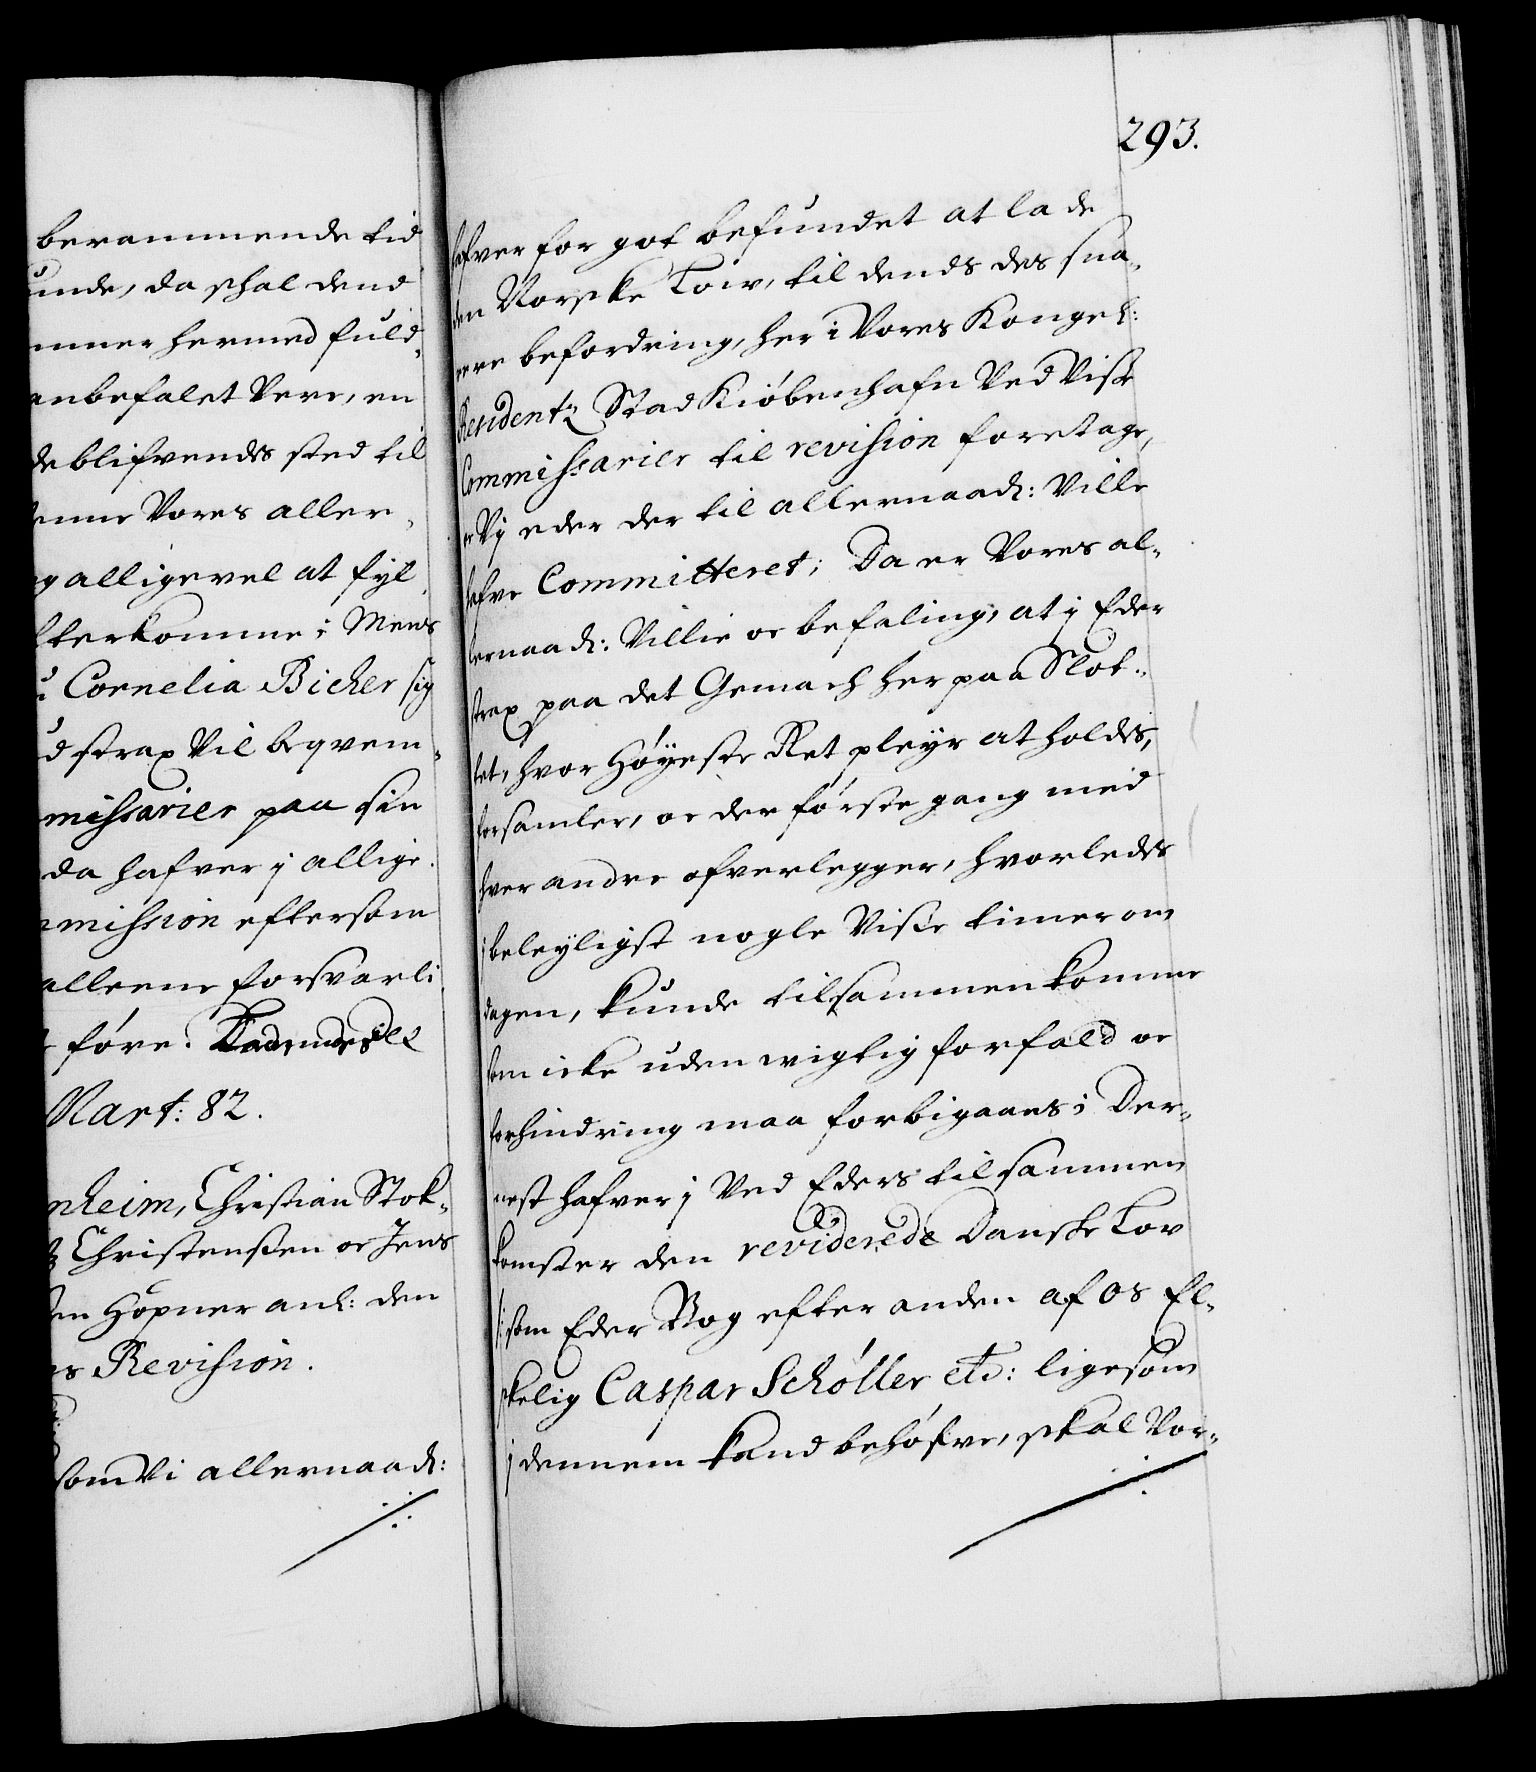 berammende tid
unde, da skal dend
immer hermed fuld-
anbefalet Vere, en
deblifvendes sted til
enne Vores aller-
og alligevel at fyl-
fterkomme; Mens
Cornelia Bicher sig
d strax Vil beqvem-
missarier paa sin
da hafver j allige-
mmission eftersom
alleene forsvarli
føre.
Mart: 82.
nheim, Christian Stok-
Christensen oc Jens
en Höpner anl: den
es Revision.
som Vi allernaad:
293.
hafver for got befundet at lade
den Norske Low, til dends des sna-
rere befordring, her i Vores Kongel:
Residentz Stad Kiöbenhafn Ved Visse
Commissarier til revision foretage,
oc Vj eder der til allernaad: Ville
hafve Committeret; Da er Vores al-
lernaad: Villie oc befaling, at j Eder
strax paa det Gemach her paa Slot-
tet, hvor Höyeste Ret pleyer at holdes,
forsamler, oc der förste gang med
hver andre ofverlegger, hvorledes
j beleyligst nogle Visse timer om
dagen, kunde tilsammenkomme
som icke uden wigtig forfald oc
forhindring maa forbigaaes; Der-
nest hafver j Ved Eders tilsammen
komster den reviderede Danske Low
/: som Eder Bog efter anden af os El-
skelig Caspar Schöller etc: ligesom
j dennem kand behöfve, skal Vor-